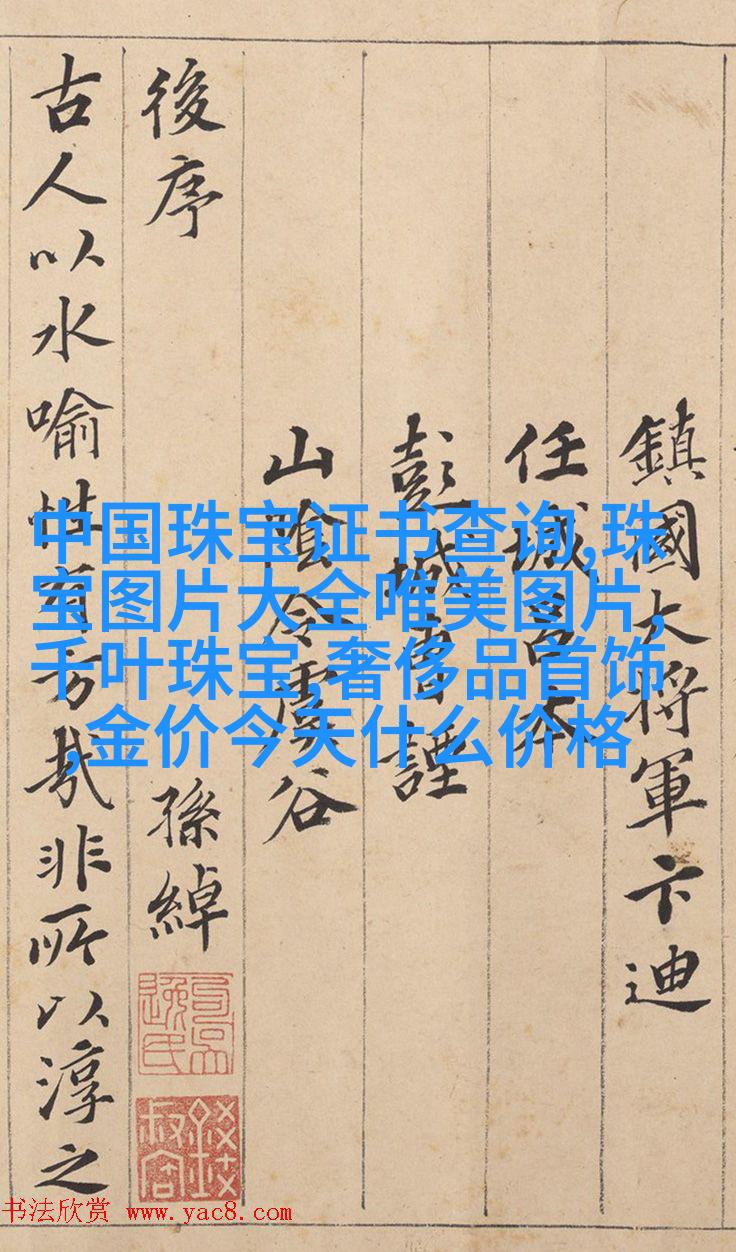 鎮國大将軍卞迪
任城呂本
彭城曹諲
山陰令虞谷
後序
孫綽
古人以水喻性有旨哉非所以淳之
中国珠宝证书查询,珠
宝图片大全唯美图片,
千叶珠宝,奢侈品首饰
,金价今天什么价格
书法欣赏 www.yac8.com